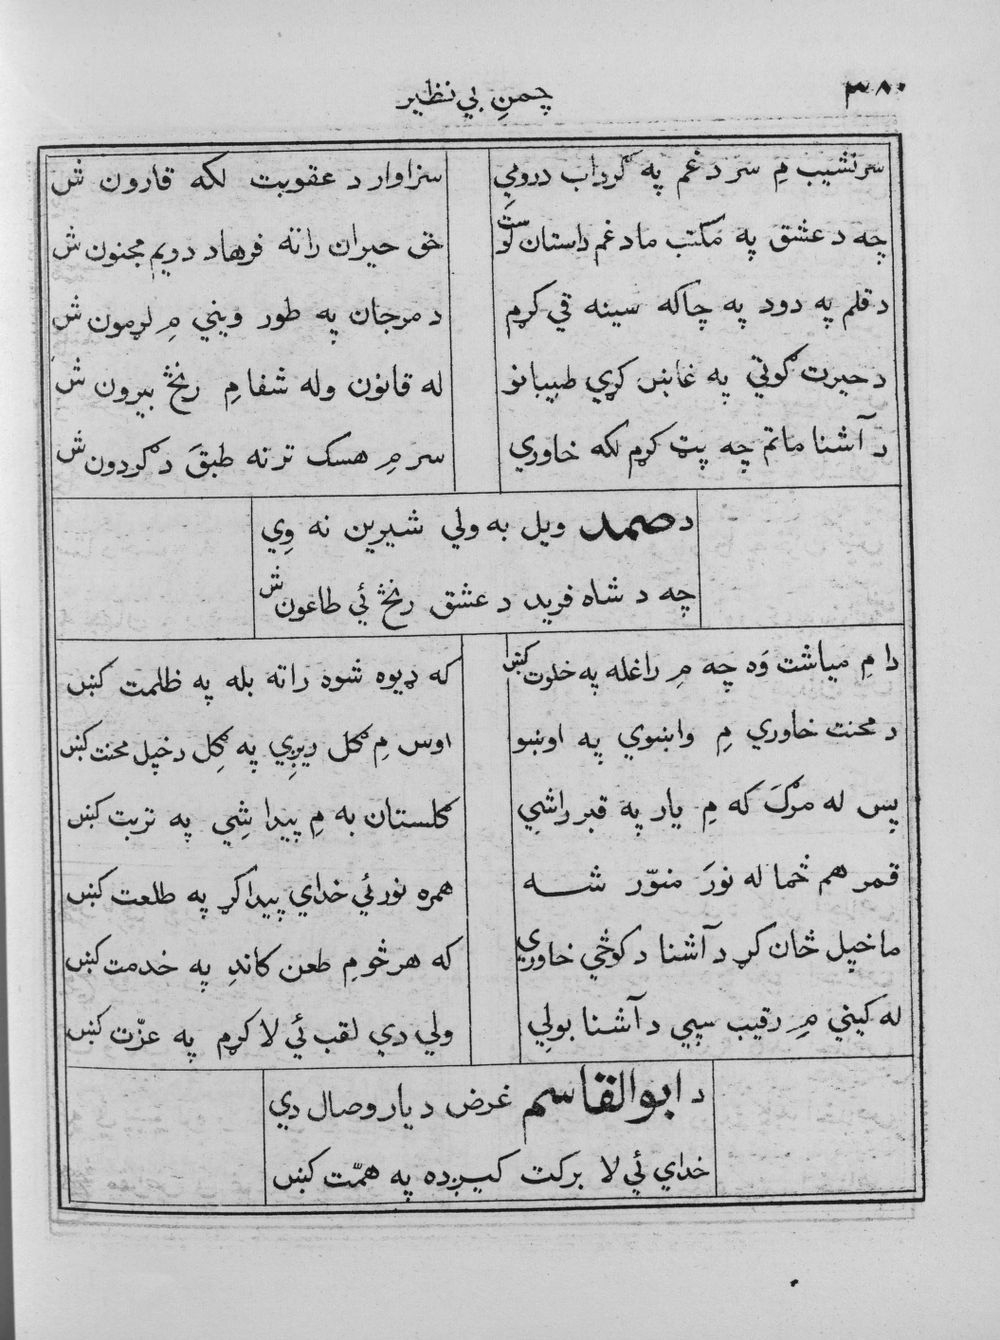 ۳۸۰
چمنِ بي نظير
سرنشيب مِ سر د غم په ګرداب درومي سزاوار د عقوبت لکه قارون ش
چه د عشق په مکتب ما د غم داستان لوست خق حيران راته فرهاد دويم مجنون ش
د قلم په دود په چاکه سينه قي کړم د مرجان په طور ويني مِ لړمون ش
د حيرت ګوتي په غاښ کړي طبيبانو له قانون وله شفا مِ رنځ بيرون ش
د آشنا ماتم چه پټ کړم لکه خاوري سر مِ هسک تر نه طبقَ د ګردون ش
د صمد ويل به ولي شيرين نه وِي
چه د شاه فريد د عشق رنځ ئي طاعون ش
دا مِ مياشت وَه چه مِ راغله په خلوت کښ که ډيوه شوه راته بله په ظلمت کښ
د محنت خاوري مِ واښوي په اوښو اوس مِ ګل ريږي په ګِل د خپل محنت کښ
پس له مرګَ که مِ يار په قبر راشي ګلستان به مِ پيدا شِي په تربت کښ
قمر هم ځما له نورَ منوّر شه همره نور ئي خداي پيدا کړ په طلعت کښ
ما خپل ځان کړ د آشنا د کوڅي خاوري که هر څو مِ طعن کاندِ په خدمت کښ
له کيني مِ رقيب سپي د آشنا بولي ولي دي لقب ئي لا کړم په عزّت کښ
د ابوالقاسم غرض د يار وصال دي
خداي ئي لا برکت کيږده په همّت کښ